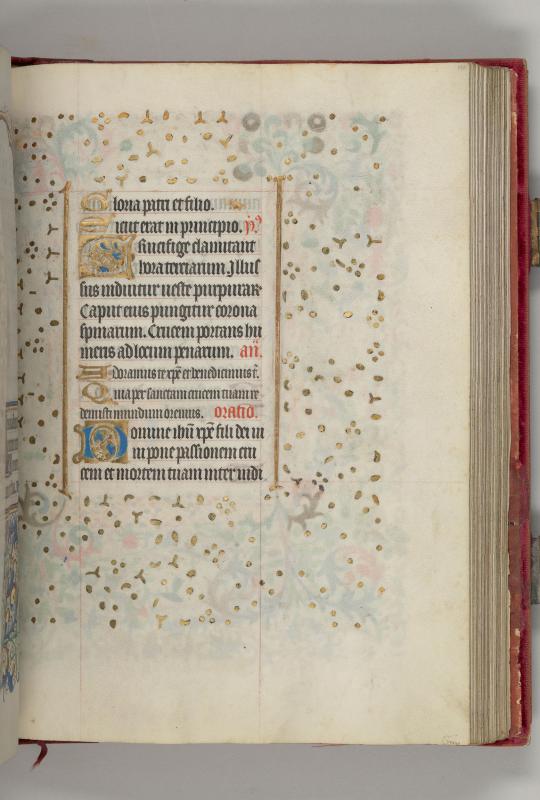 Gloria patri et filio.
Sicut erat in principio. ps
Crucifige clamitant
hora terciarum Illus
sus induitur ueste purpurar
Caput eius pungitur corona
spinarum. Crucem portans hu
meris ad locum penarum. an.
Adoramus te xpe et benedicimus t.
Quia per sanctam crucem tuam re
demisti mundum oremus. oratio.
Domine ihu xpe fili dei ui
ui pone passionem cru
cem et mortem tuam inter iudi